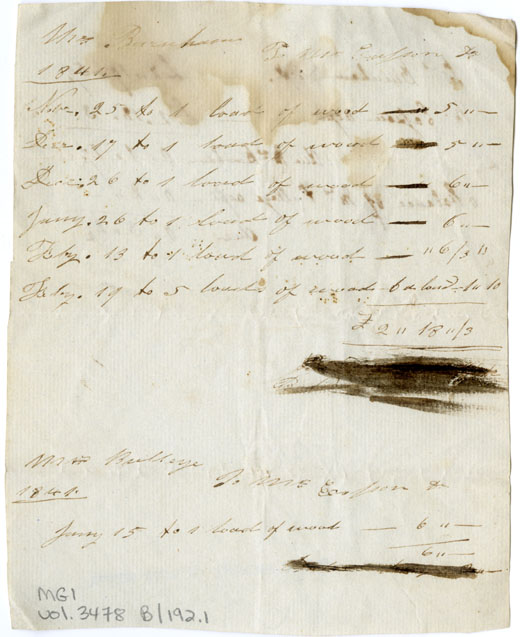 Mrs Burnham To Mr Dr
1841
Nov. 25 to 1 load of wood — " 5 "–
Dec. 17 to 1 load of wood 5 "–
Dec. 26 to 1 load of wood — 6 "–
Jany. 26 to 1 load of wood — 6 "–
Feby. 13 to 1 load of wood — "6/3"
Feby. 19 to 5 loads of wood 6 a load 1 " 10
£ 2 " 18 "/3
Mrs To Mr Dr
1841.
Jany 15 to 1 load of wood — 6 "–
6 "–
MG1
vol. 3478 B/192.1